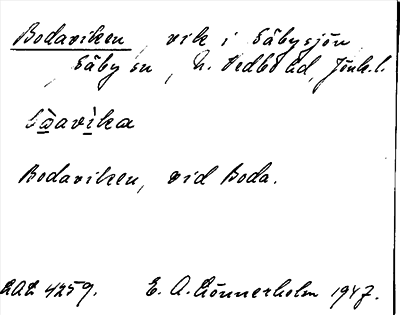 Bodaviken, vik i Säbysjön
Säby sn, N. Vedbo hd, Jönk. l.
Bodaviken, vid Boda.
4259. E. A. Rönnerholm 1947.